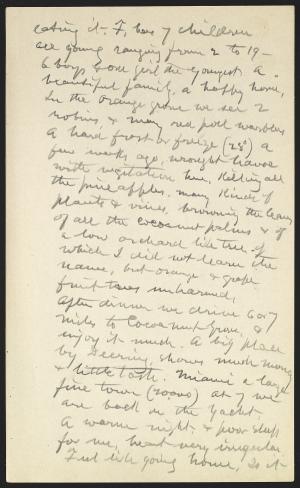 eating it. F. has 7 children
all young ranging from 2 to 19 -
6 boys & one girl the youngest. A
beautiful family, a happy home,
In the orange grove we see 2
robins & many red poll warblers
A hard frost or freeze (28°) a
few weeks ago, wrought havoc
with vegetation here, killing all
the pineapples, many kinds of
plants & vines, browning the leaves
of all the cocoanut palms & of
a low orchard like tree of
which I did not learn the
name, but orange & grape
fruit trees unharmed,
After dinner we drive 6 or 7
miles to Cocoanut Grove, &
enjoy it much. A big place
by Deering, shows much money
& little taste. Miami a large
fine town (20000) at 7 we
are back on the yacht.
A warm night, & poor sleep
for me, heart very irregular
Feel like going home, so it